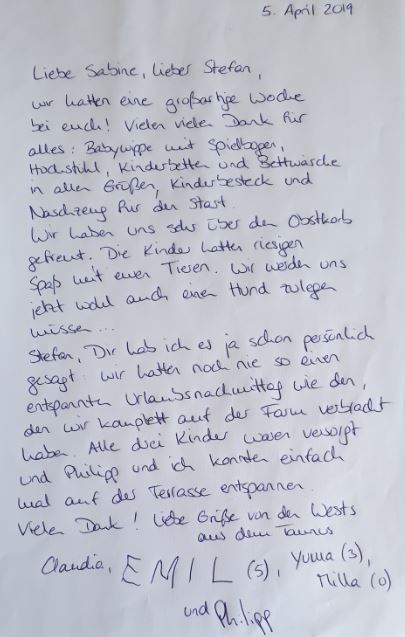 5. April 2019
Liebe Sabine, lieber Stefan,
wir hatten eine großartige Woche
bei euch! Vielen vielen Dank für
alles: Babywippe mit Spielbogen,
Hochstuhl, Kinderbetten und Bettwäsche
in allen Größen, Kinderbesteck und
Naschzeug für den Start.
Wir haben uns sehr über den Obstkorb
gefreut. Die Kinder hatten riesigen
Spaß mit euren Tieren. Wir werden uns
jetzt wohl auch einen Hund zulegen
müssen...
Stefan, Dir hab ich es ja schon persönlich
gesagt: wir hatten noch nie so einen
entspannten Urlaubsnachmittag wie den,
den wir komplett auf der Farm verbracht
haben. Alle drei Kinder waren versorgt
und Philipp und ich konnten einfach
mal auf der Terrasse entspannen.
Vielen Dank! Liebe Grüße von den Wests
aus dem Taunus
Claudia, EMIL (5), Yuma (3),
Milla (0)
und Philipp